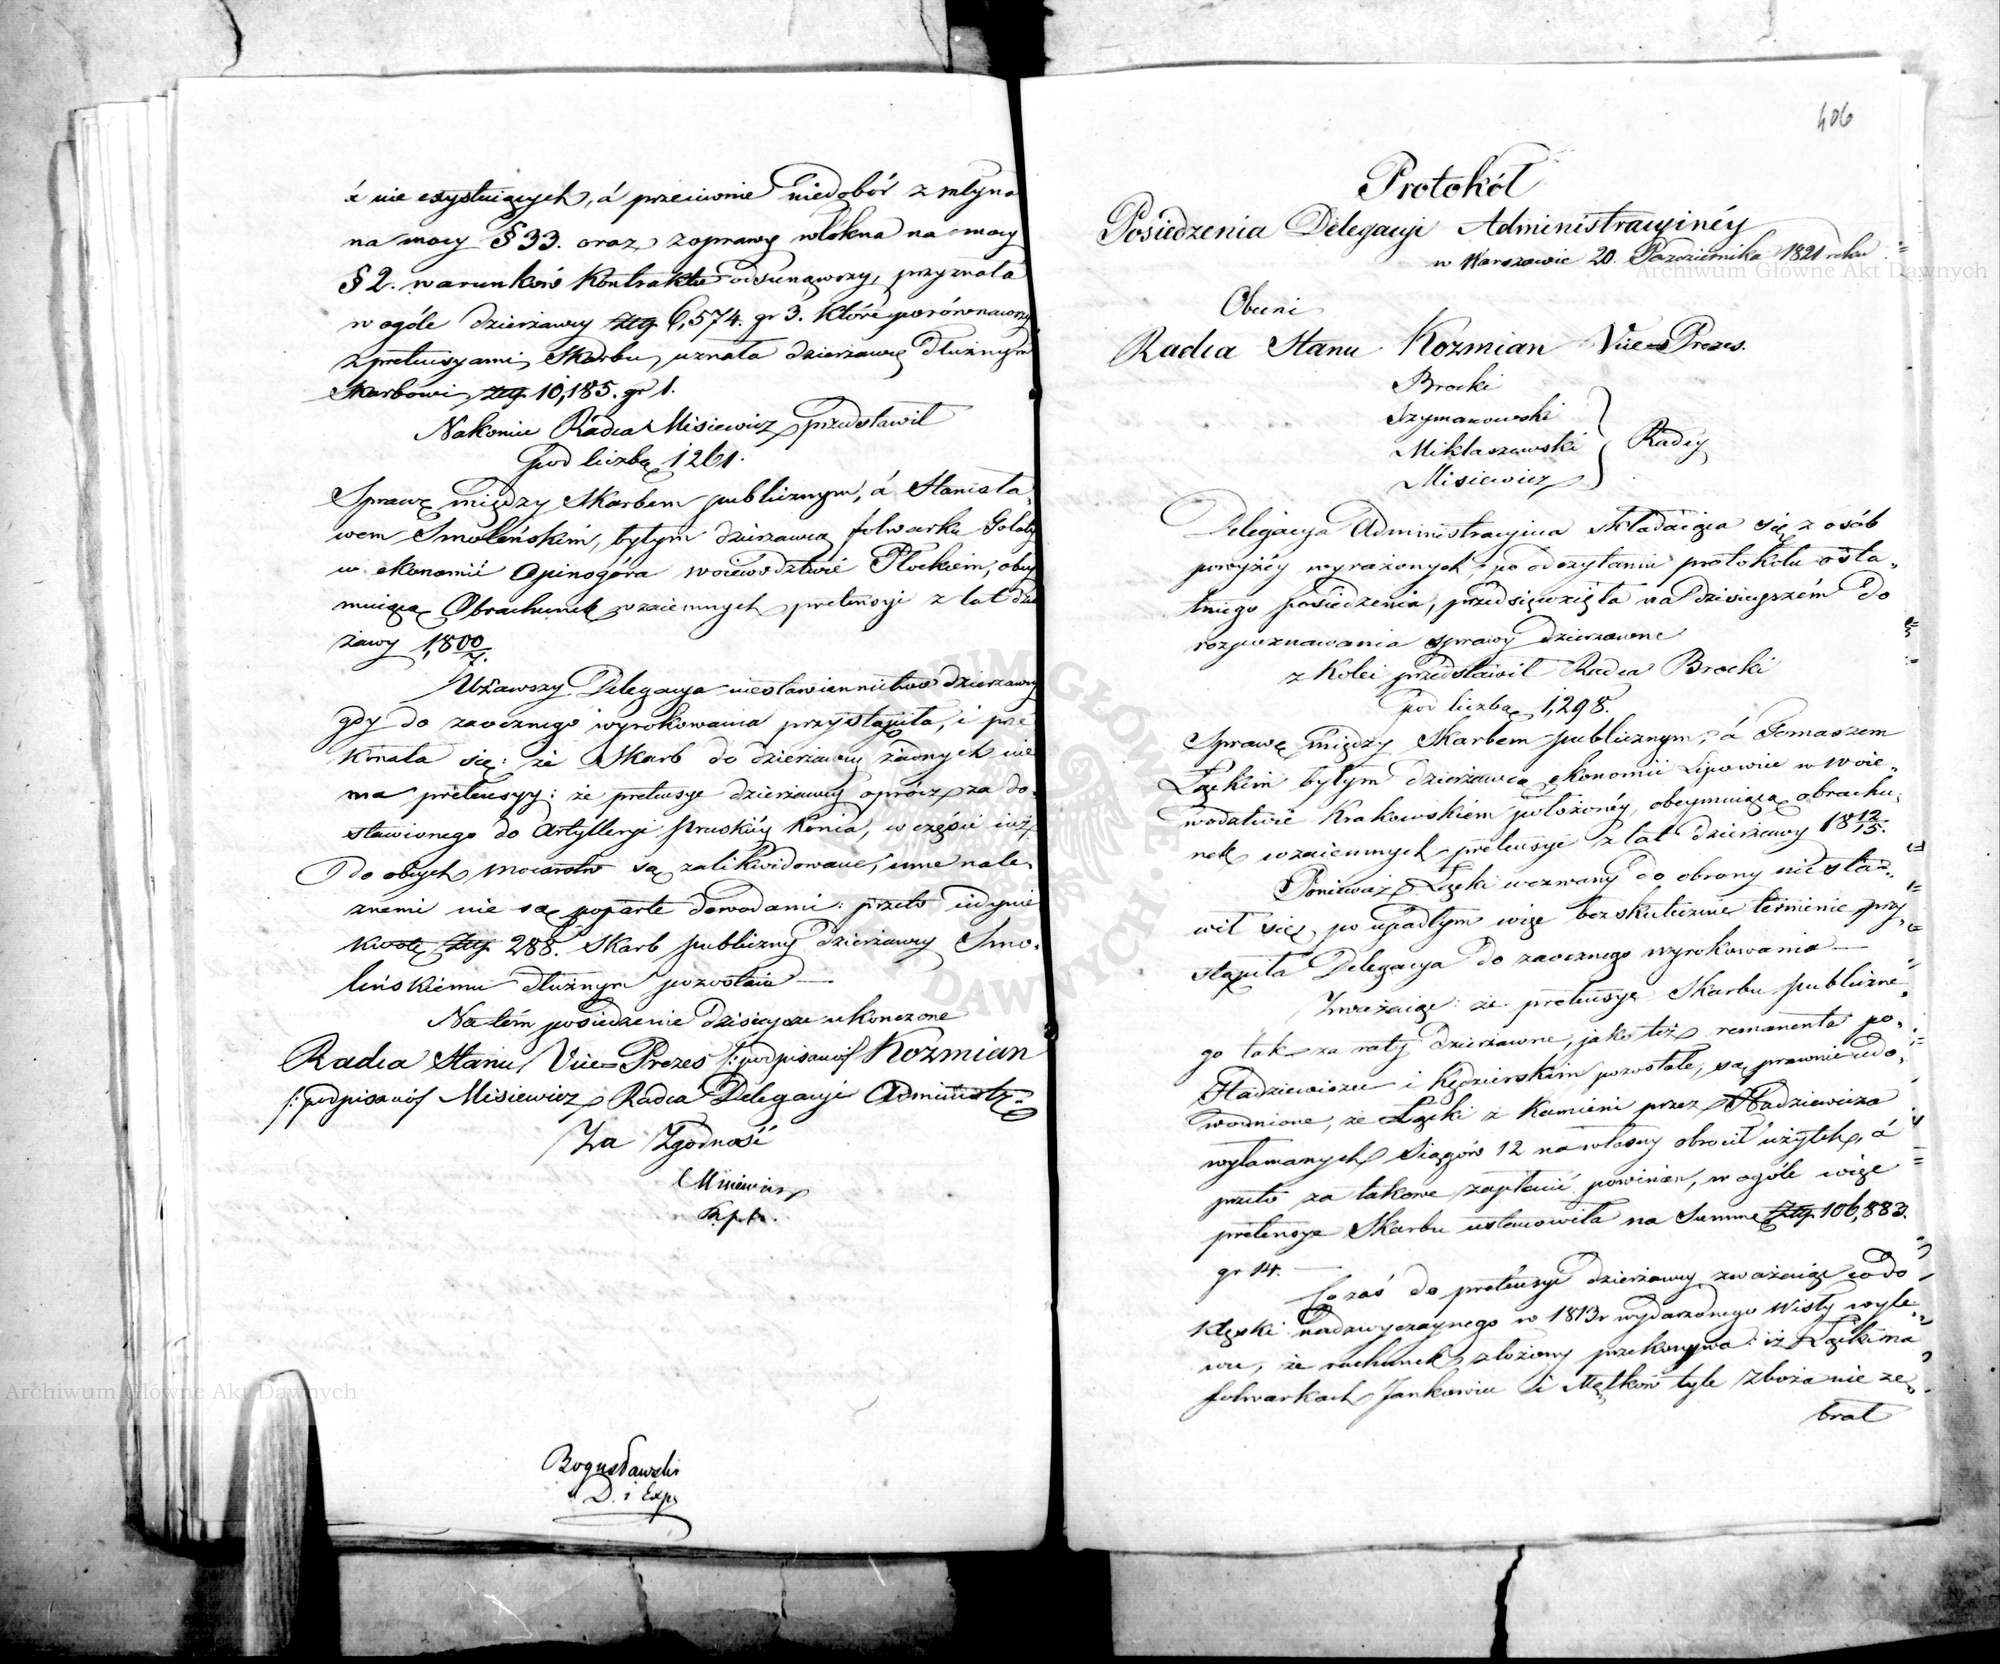 á nie exystuiących, á przeciwnie niedobór z młyna
na mocy § 33. oraz zoprawę włókna na mocy
§ 2. warunków Kontraktu odsunąwszy, przyznała
w ogóle dzierżawcy Złtp. 6,574. gr 3. które porównawszy
z pretensyami Skarbu, uznała dzierżawcę dłużnym
Skarbowi Złtp. 10,185. gr 1.
Nakoniec Radca Misiewicz przedstawił
pod liczbą 1261.
Sprawę między Skarbem publicznym, á Stanisła
wem Smoleńskim, byłym dzierżawcą folwarku Gołoty
w ekonomii Opinogóra woiewództwie Płockiem, obey
muiącą Obrachunek wzaiemnych pretensyi z lat dzier
żawy 1,800/7.
Uważawszy Delegacya niestawiennictwo dzierżawcy
gdy do zaocznego wyrokowania przystąpiła, i prze
konała się: że Skarb do dzierżawcy żadnych nie
ma pretensyy: że pretensye dzierżawcy oprócz za do-
stawionego do Artylleryi pruskiéy Konia, w części iuż
do obcych mocarstw są zalikwidowane, inne nale-
żnemi nie są poparte dowodami: przeto iedynie
kwotę Złtp. 288. Skarb publiczny dzierżawcy Smo-
leńskiemu dłużnym pozostaie —
Na tém posiedzenie dzisieysze ukończone
Radca Stanu Vice=Prezes /:podpisano:/ Koźmian
/:podpisano:/ Misiewicz Radca Delegacyi Administr:
Za Zgodność
Misiewicz
Bogusławski
D. i Exp
406
Protokół
Posiedzenia Delegacyi Administracyinéy
w Warszawie 20. Października 1821 roku
Obecni
Radca Stanu Koźmian Vice=Prezes.
Brocki
Szymanowski
Miklaszewski
Radcy
Misiewicz
Delegacya Administracyina składaiąca się z osób
powyżéy wyrażonych, po odczytaniu protokółu osta-
tniego posiedzenia, przedsięwzięła na dzisieyszém do
rozpoznawania sprawy dzierżawne
z kolei przedstawił Radca Brocki
pod liczbą 1,298.
Sprawę między Skarbem publicznym, á Tomaszem
Łąckim byłym dzierżawcą ekonomii Lipowiec w woie-
wództwie Krakowskiém położonéy, obeymuiącą obrachu-
nek wzaiemnych pretensyi z lat dzierżawy 18 12/15.
Ponieważ Łącki wezwany do obrony nie sta-
wił się, po upadłym więc bezskutecznie terminie przy-
stąpiła Delegacya do zaocznego wyrokowania —
Zważaiąc: że pretensye Skarbu publiczne-
go tak za raty dzierżawne, jako też remanenta po
Hadziewiczu i Kędzierskim pozostałe, są prawnie udo-
wodnione, że Łącki z Kamieni przez Hadziewicza
wyłamanych Siągów 12 na własny obrócił użytek, á
przeto za takowe zapłacić powinien, w ogóle więc
pretensye Skarbu ustanowiła na Summę Złtp. 106,883.
gr 14. —
Co zaś do pretensyi dzierżawcy zważaiąc co do
klęski nadzwyczaynego w 1813 r wydarzonego Wisły wyle-
wu, że rachunek złożony przekonywa: iż Łącki na
folwarkach Jankowice i Mętków tyle zboża nie ze-
brał
Archiwum Główne Akt Dawnych
Archiwum Główne Akt Dawnych